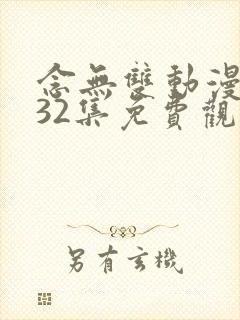 念無雙動漫
32集免費觀
另有玄機